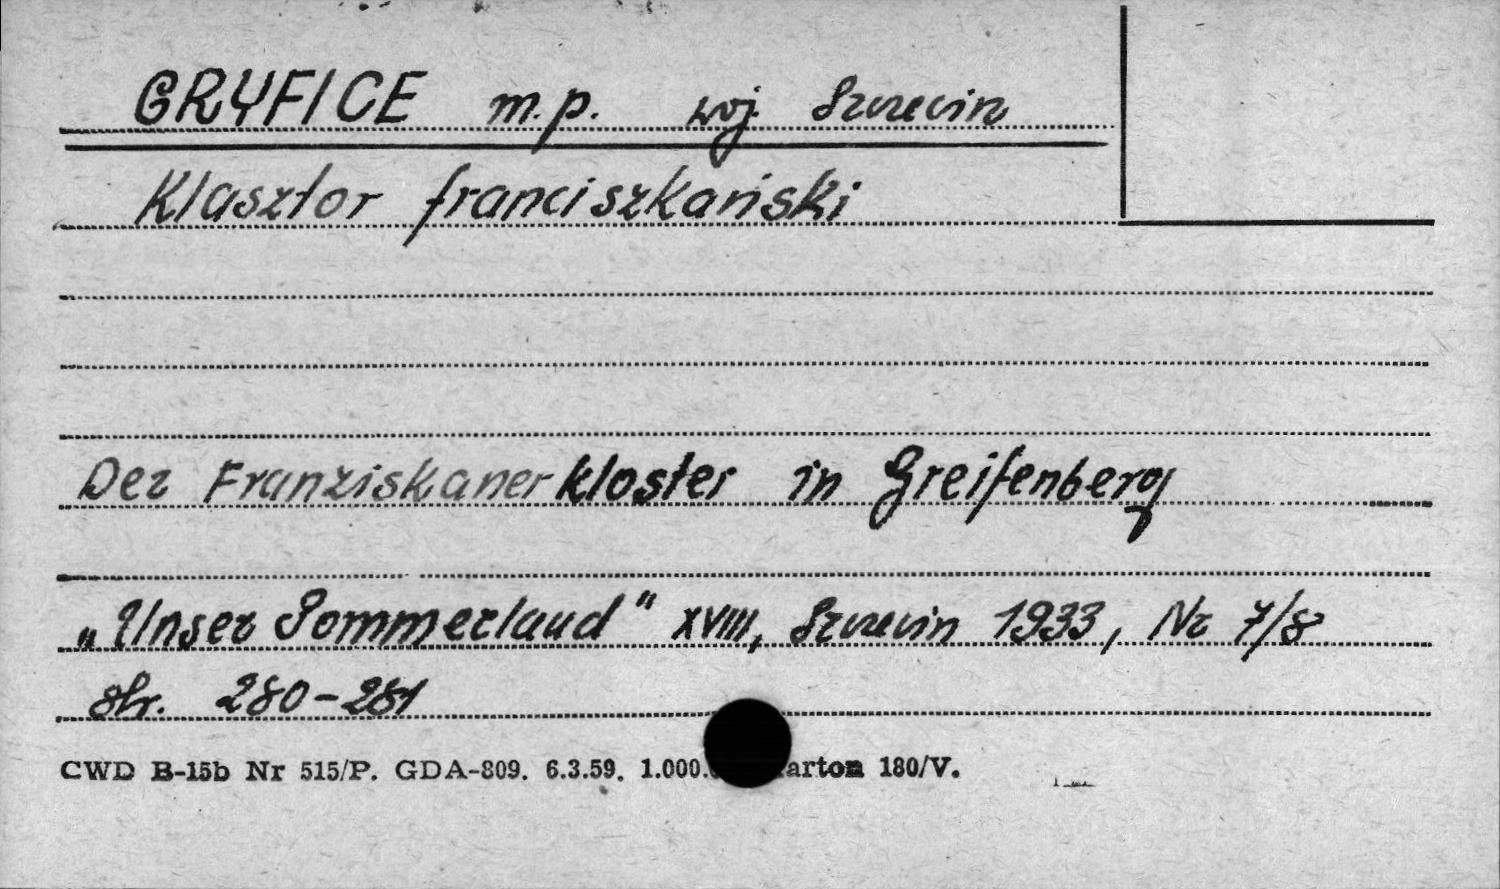 GRYFICE m.p. woj. Szczecin
Klasztor franciszkański
Der Franziskanerkloster in Greifenberg
„Unser Pommerland" XVIII, Szczecin 1933, Nr 7/8
str. 280-281
CWD B-15b Nr 515/P. GDA-809. 6.3.59. 1.000. arton 180/V.